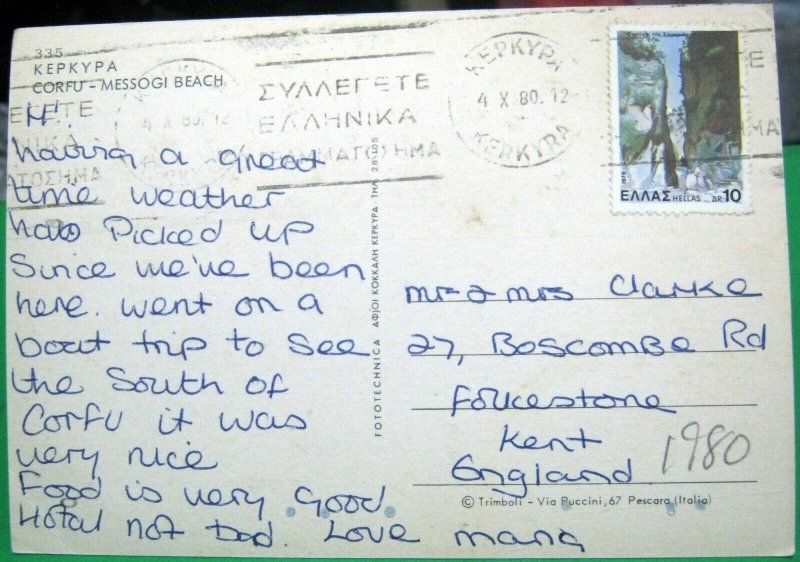 335
ΚΕΡΚΥΡΑ
CORFU - MESSOGI BEACH
ΣΥΛΛΕΓΕΤΕ
ΕΛΛΗΝΙΚΑ
ΓΡΑΜΜΑΤΟΣΗΜΑ
ΚΕΡΚΥΡΑ
4 X 80. 12
ΚΕΡΚΥΡΑ
1979
ΕΛΛΑΣ HELLAS ΔΡ 10
Hi.
having a great
time weather
has Picked up
Since we've been
here. went on a
boat trip to See
the South of
Corfu it was
very nice
Food is very Good
Hotal not bad. Love
FOTOTECHNICA ΑΦ/ΟΙ ΚΟΚΚΑΛΗ ΚΕΡΚΥΡΑ ΤΗΛ 28-105
mr & mrs Clarke
27, Boscombe Rd
Folkestone
Kent
England
1980
© Trimboli - Via Puccini, 67 Pescara (Italia)